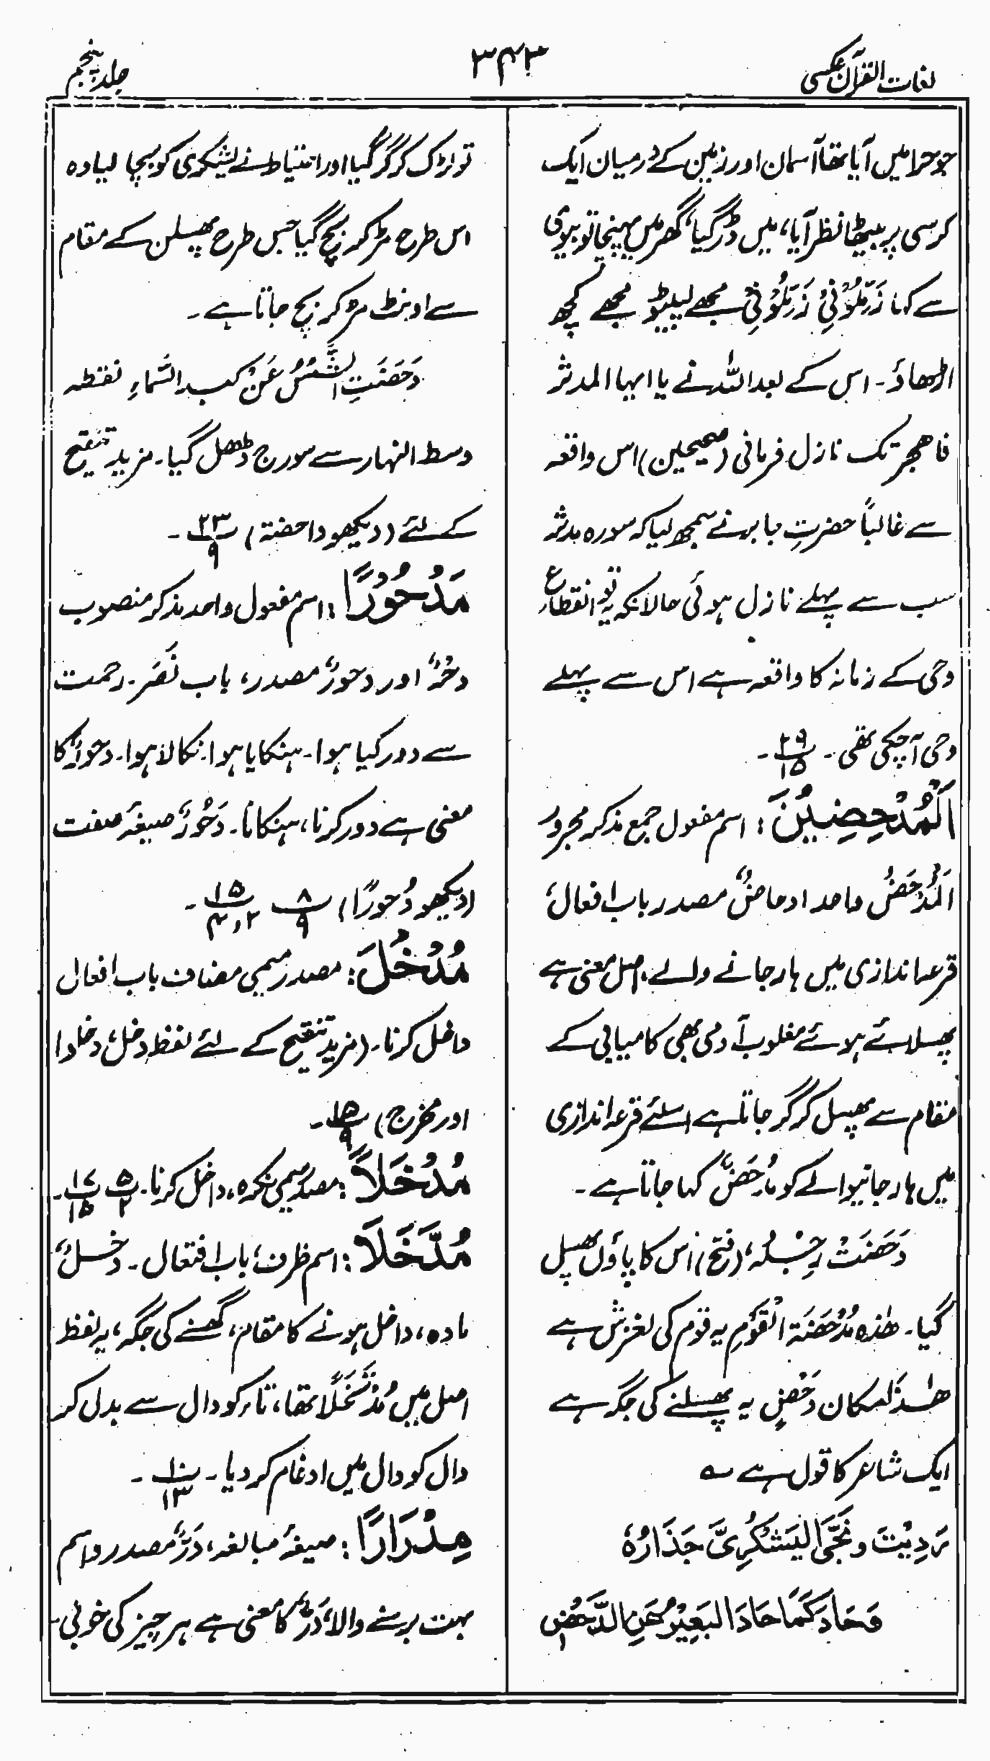 لغات القرآن عکسی
۳۴۳
جلد پنجم
جو حرا میں آیا تھا آسمان اور زمین کے درمیان ایک
کرسی پر بیٹھا نظر آیا، میں ڈر گیا، گھر میں پہنچا تو بیوی
سے کہا زَمِّلُوْنِیْ زَمِّلُوْنِیْ مجھے لپیٹو مجھے کچھ
اڑھاؤ۔ اس کے بعد اللہ نے یا ایہا المدثر
فاھجر تک نازل فرمائی (صحیحین) اس واقعہ
سے غالباً حضرتِ جابر نے سمجھ لیا کہ سورہ مدثر
سب سے پہلے نازل ہوئی حالانکہ یہ تو انقطاع
وحی کے زمانہ کا واقعہ ہے اس سے پہلے
وحی آچکی تھی۔ ۲۹/۱۵۔
اَلْمُدْحَضِیْنَ: اسم مفعول جمع مذکر مجرور
اَلْمُدْحَضُ واحد ادحاضٌ مصدر باب افعال،
قرعہ اندازی میں ہار جانے والے، اصل معنی ہے
پھسلائے ہوئے مغلوب آدمی بھی کامیابی کے
مقام سے پھسل کر گر جاتا ہے اسلئے قرعہ اندازی
میں ہار جانیوالے کو مُدْحَضٌ کہا جاتا ہے۔
دَحَضَتْ رِجْلُہٗ، (فتح) اس کا پاؤں پھسل
گیا۔ ھٰذہٖ مُدْحَضَۃ الْقَوْمِ یہ قوم کی لغزش ہے
ھٰذَا مکان دَحْضٍ یہ پھسلنے کی جگہ ہے
ایک شاعر کا قول ہے ؎
رَدِیْتَ و نَجَّی الیَشْکُرِیَّ حِذَارُہٗ
وَحَادَ کَمَا حَادَ البَعِیْرُ عَنِ الدَّحْضِ
تو لڑک کر گر گیا اور احتیاط نے یشکری کو بچا لیا وہ
اس طرح مڑ کر بچ گیا جس طرح پھسلن کے مقام
سے اونٹ مڑ کر بچ جاتا ہے۔
دَحَضَتِ الشَّمْسُ عَنْ کبد السَّماءِ نقطہ
وسط النہار سے سورج ڈھل گیا۔ مزید تنقیح
کے لئے (دیکھو داحضۃ) ۲۳/۹۔
مَدْحُوْرًا: اسم مفعول واحد مذکر منصوب
دحْرٌ اور دحورٌ مصدر، باب نَصَر۔ رحمت
سے دور کیا ہوا۔ ہنکایا ہوا۔ نکالا ہوا۔ دحورٌ کا
معنی ہے دور کرنا، ہنکانا۔ دَحُوْرٌ، صیغۂ صفت
(دیکھو دُحورًا) ۸/۹ ۱۵/۲،۴۔
مُدْخَلَ: مصدر میمی مضاف باب افعال
داخل کرنا۔ (مزید تنقیح کے لئے لفظ دخل، دخلوا
اور مخرج) ۱۵/۹۔
مُدْخَلاً: مصدر میمی نکرہ، داخل کرنا۔ ۵/۲ ۱۷/۱۵۔
مُدَّخَلاً: اسم ظرف، باب افتعال۔ دخل،
مادہ، داخل ہونے کا مقام، گھسنے کی جگہ، یہ لفظ
اصل میں مُدْتَخَلًا تھا، تاء کو دال سے بدل کر
دال کو دال میں ادغام کر دیا۔ ۱۰/۱۳۔
مِدْرَارًا: صیغۂ مبالغہ، دَرٌّ مصدر و اسم
بہت برسنے والا، دَرٌّ کا معنی ہے ہر چیز کی خوبی۔